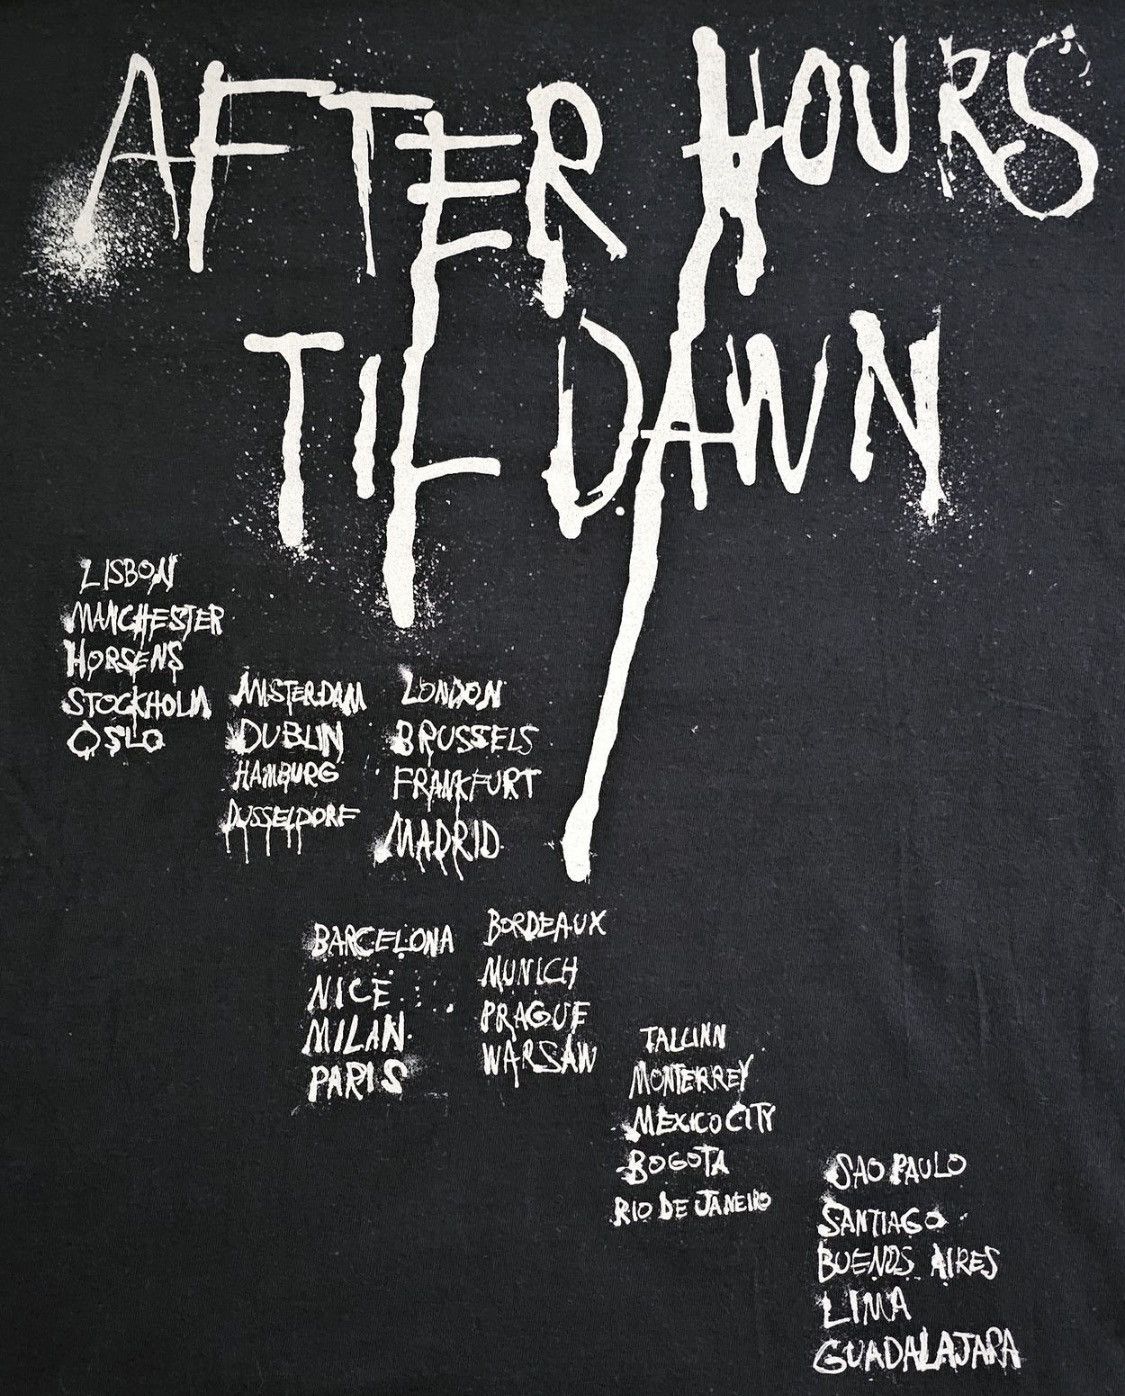 AFTER HOURS
TIL DAWN
LISBON
MANCHESTER
HORSENS
STOCKHOLM
OSLO
AMSTERDAM
DUBLIN
HAMBURG
DUSSELDORF
LONDON
BRUSSELS
FRANKFURT
MADRID
BARCELONA
NICE
MILAN
PARIS
BORDEAUX
MUNICH
PRAGUE
WARSAW
TALLINN
MONTERREY
MEXICO CITY
BOGOTA
RIO DE JANEIRO
SAO PAULO
SANTIAGO
BUENOS AIRES
LIMA
GUADALAJARA